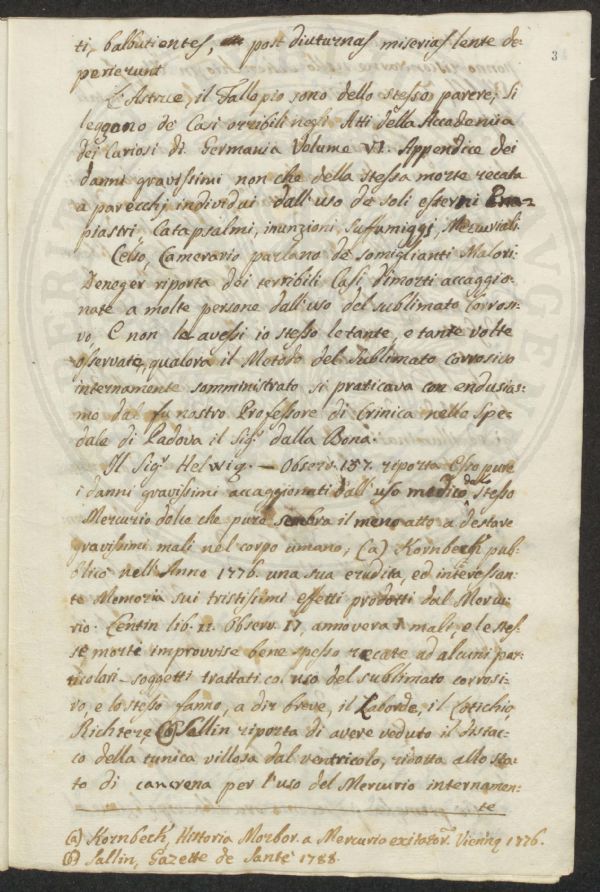 3
ti, balbutientes, post diuturnas miserias lente de=
perierunt
L'Astruc, il Fallopio sono dello stesso parere; si
leggono de' Casi orribili negli Atti della Accademia
dei Curiosi di Germania Volume VI. Appendice dei
danni gravissimi non che della stessa morte recata
a parecchj individui dall'uso de soli esterni Em=
piastri Catapsalmi, inunzioni, suffumiggj Mercuriali.
Celso, Camerario parlano de somiglianti Malori.
Denoger riporta dei terribili Casi d'morti accaggio=
nate a molte persone dall'uso del sublimato Corrosi=
vo, E non le avessi io stesso le tante, e tante volte
osservate, qualora il Metodo del Sublimato Corrosivo
internamente somministrato si praticava con endusias=
mo dal fu nostro Professore di Crinica nello Spe=
dale di Padova il Sigr dalla Bona.
Il Sigr Helwig. — Observ. 157. riporta Esso pure
i danni gravissimi accaggionati dall'uso medico dello stesso
Mercurio dolce che pure sembra il meno atto a destare
gravissimi mali nel corpo umano; (a) Kornbeck pub=
blicò nell'Anno 1776. una sua erudita, ed interessan=
te Memoria sui tristissimi effetti prodotti dal Mercu=
rio. Lentin lib. II. Observ. 17, annovera i mali, e le stes=
se morti improvvise bene spesso recate ad alcuni par=
ticolari soggetti trattati co' uso del sublimato corrosi=
vo, e lo stesso fanno, a dir breve, il Laborde, il Lotschio,
Richter e (b) Sallin riporta di avere veduto il distac=
co della tunica villosa dal ventricolo, ridotta allo sta=
to di cancrena per l'uso del Mercurio internamen=
te
(a) Kornbeck, Historia Morbor. a Mercurio exitator. Vienna 1776.
(b) Sallin, Gazette de Santé 1788.